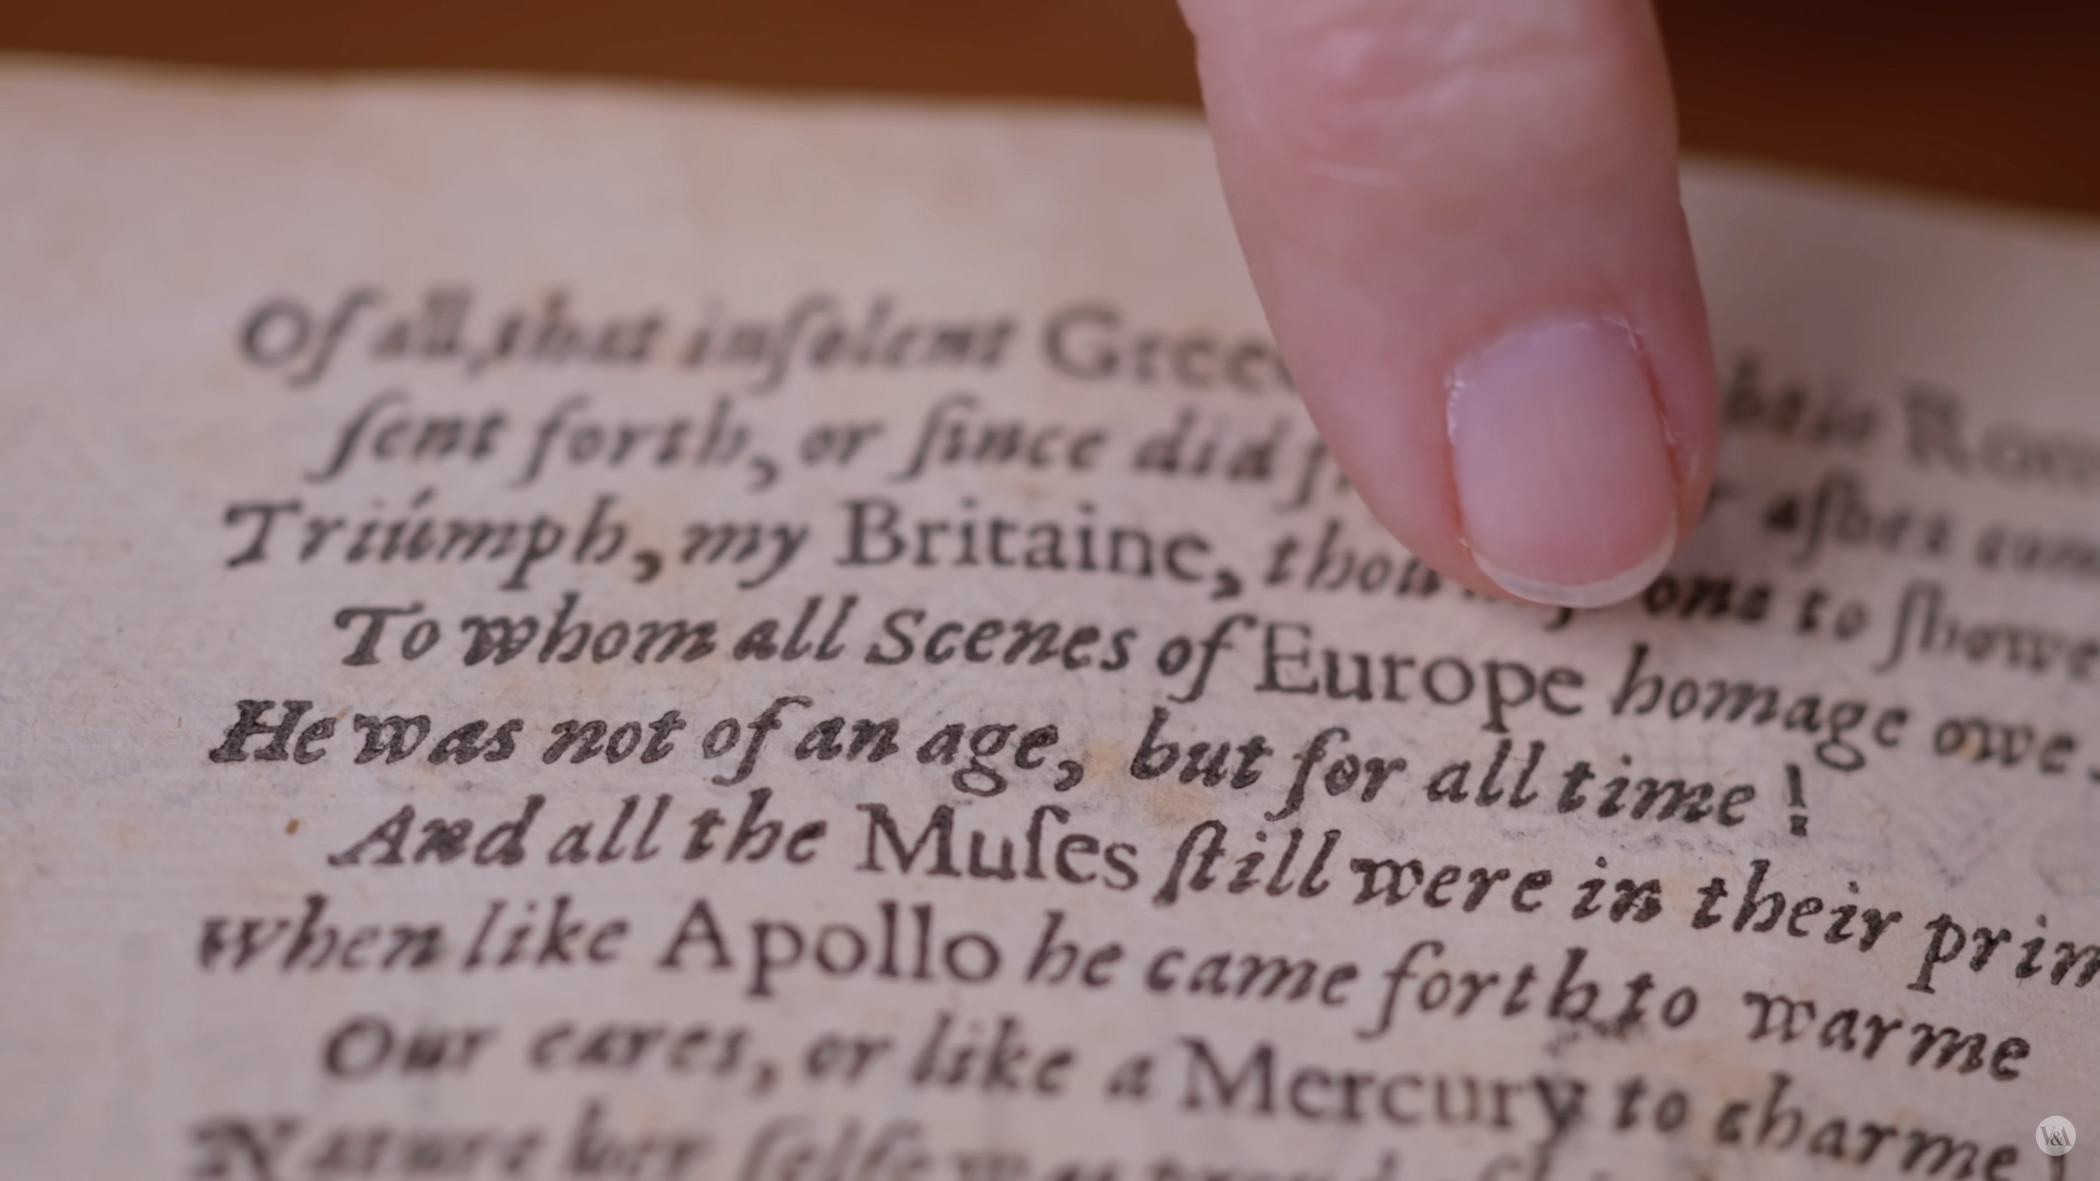 Of all, that inſolent Greec htie Rom
ſent forth, or ſince did aſhes com
Triúmph, my Britaine, thou one to ſhowe
To whom all Scenes of Europe homage owe.
He was not of an age, but for all time!
And all the Muſes ſtill were in their prim
when like Apollo he came forth to warme
Our eares, or like a Mercury to charme!
Nature her ſelfe was
V&A